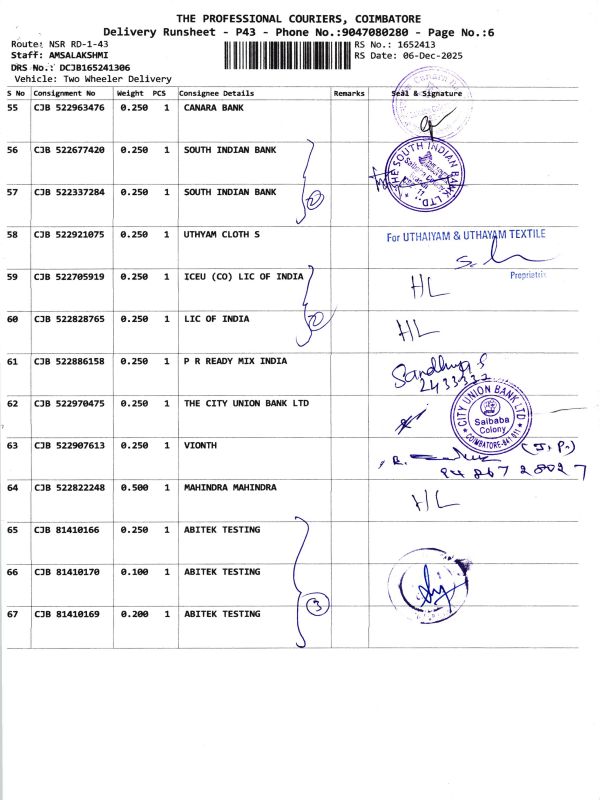 THE PROFESSIONAL COURIERS, COIMBATORE
Delivery Runsheet - P43 - Phone No.:9047080280 - Page No.:6
Route: NSR RD-1-43 RS No.: 1652413
Staff: AMSALAKSHMI RS Date: 06-Dec-2025
DRS No.: DCJB165241306
Vehicle: Two Wheeler Delivery
S No Consignment No Weight PCS Consignee Details Remarks Seal & Signature
55 CJB 522963476 0.250 1 CANARA BANK
56 CJB 522677420 0.250 1 SOUTH INDIAN BANK
THE SOUTH INDIAN BANK LTD.
57 CJB 522337284 0.250 1 SOUTH INDIAN BANK
2
58 CJB 522921075 0.250 1 UTHYAM CLOTH S
For UTHAIYAM & UTHAYAM TEXTILE
Propriatrix
59 CJB 522705919 0.250 1 ICEU (CO) LIC OF INDIA HL
60 CJB 522828765 0.250 1 LIC OF INDIA 2 HL
61 CJB 522886158 0.250 1 P R READY MIX INDIA
Sandhya S
2433332
62 CJB 522970475 0.250 1 THE CITY UNION BANK LTD
CITY UNION BANK LTD
Saibaba
Colony
COIMBATORE-641 011
63 CJB 522907613 0.250 1 VIONTH
(J.P.)
94867 28027
64 CJB 522822248 0.500 1 MAHINDRA MAHINDRA HL
65 CJB 81410166 0.250 1 ABITEK TESTING
66 CJB 81410170 0.100 1 ABITEK TESTING
67 CJB 81410169 0.200 1 ABITEK TESTING 3